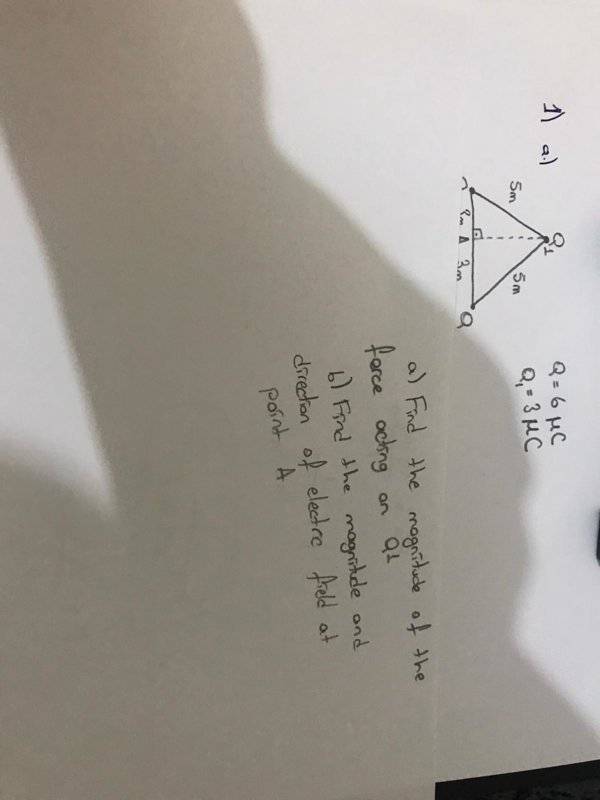 1) a.)
Q1
5m 5m
A 3m Q
Q = 6 μC
Q₁ = 3 μC
a) Find the magnitude of the
force acting on Q1
b) Find the magnitude and
direction of electric field at
point A